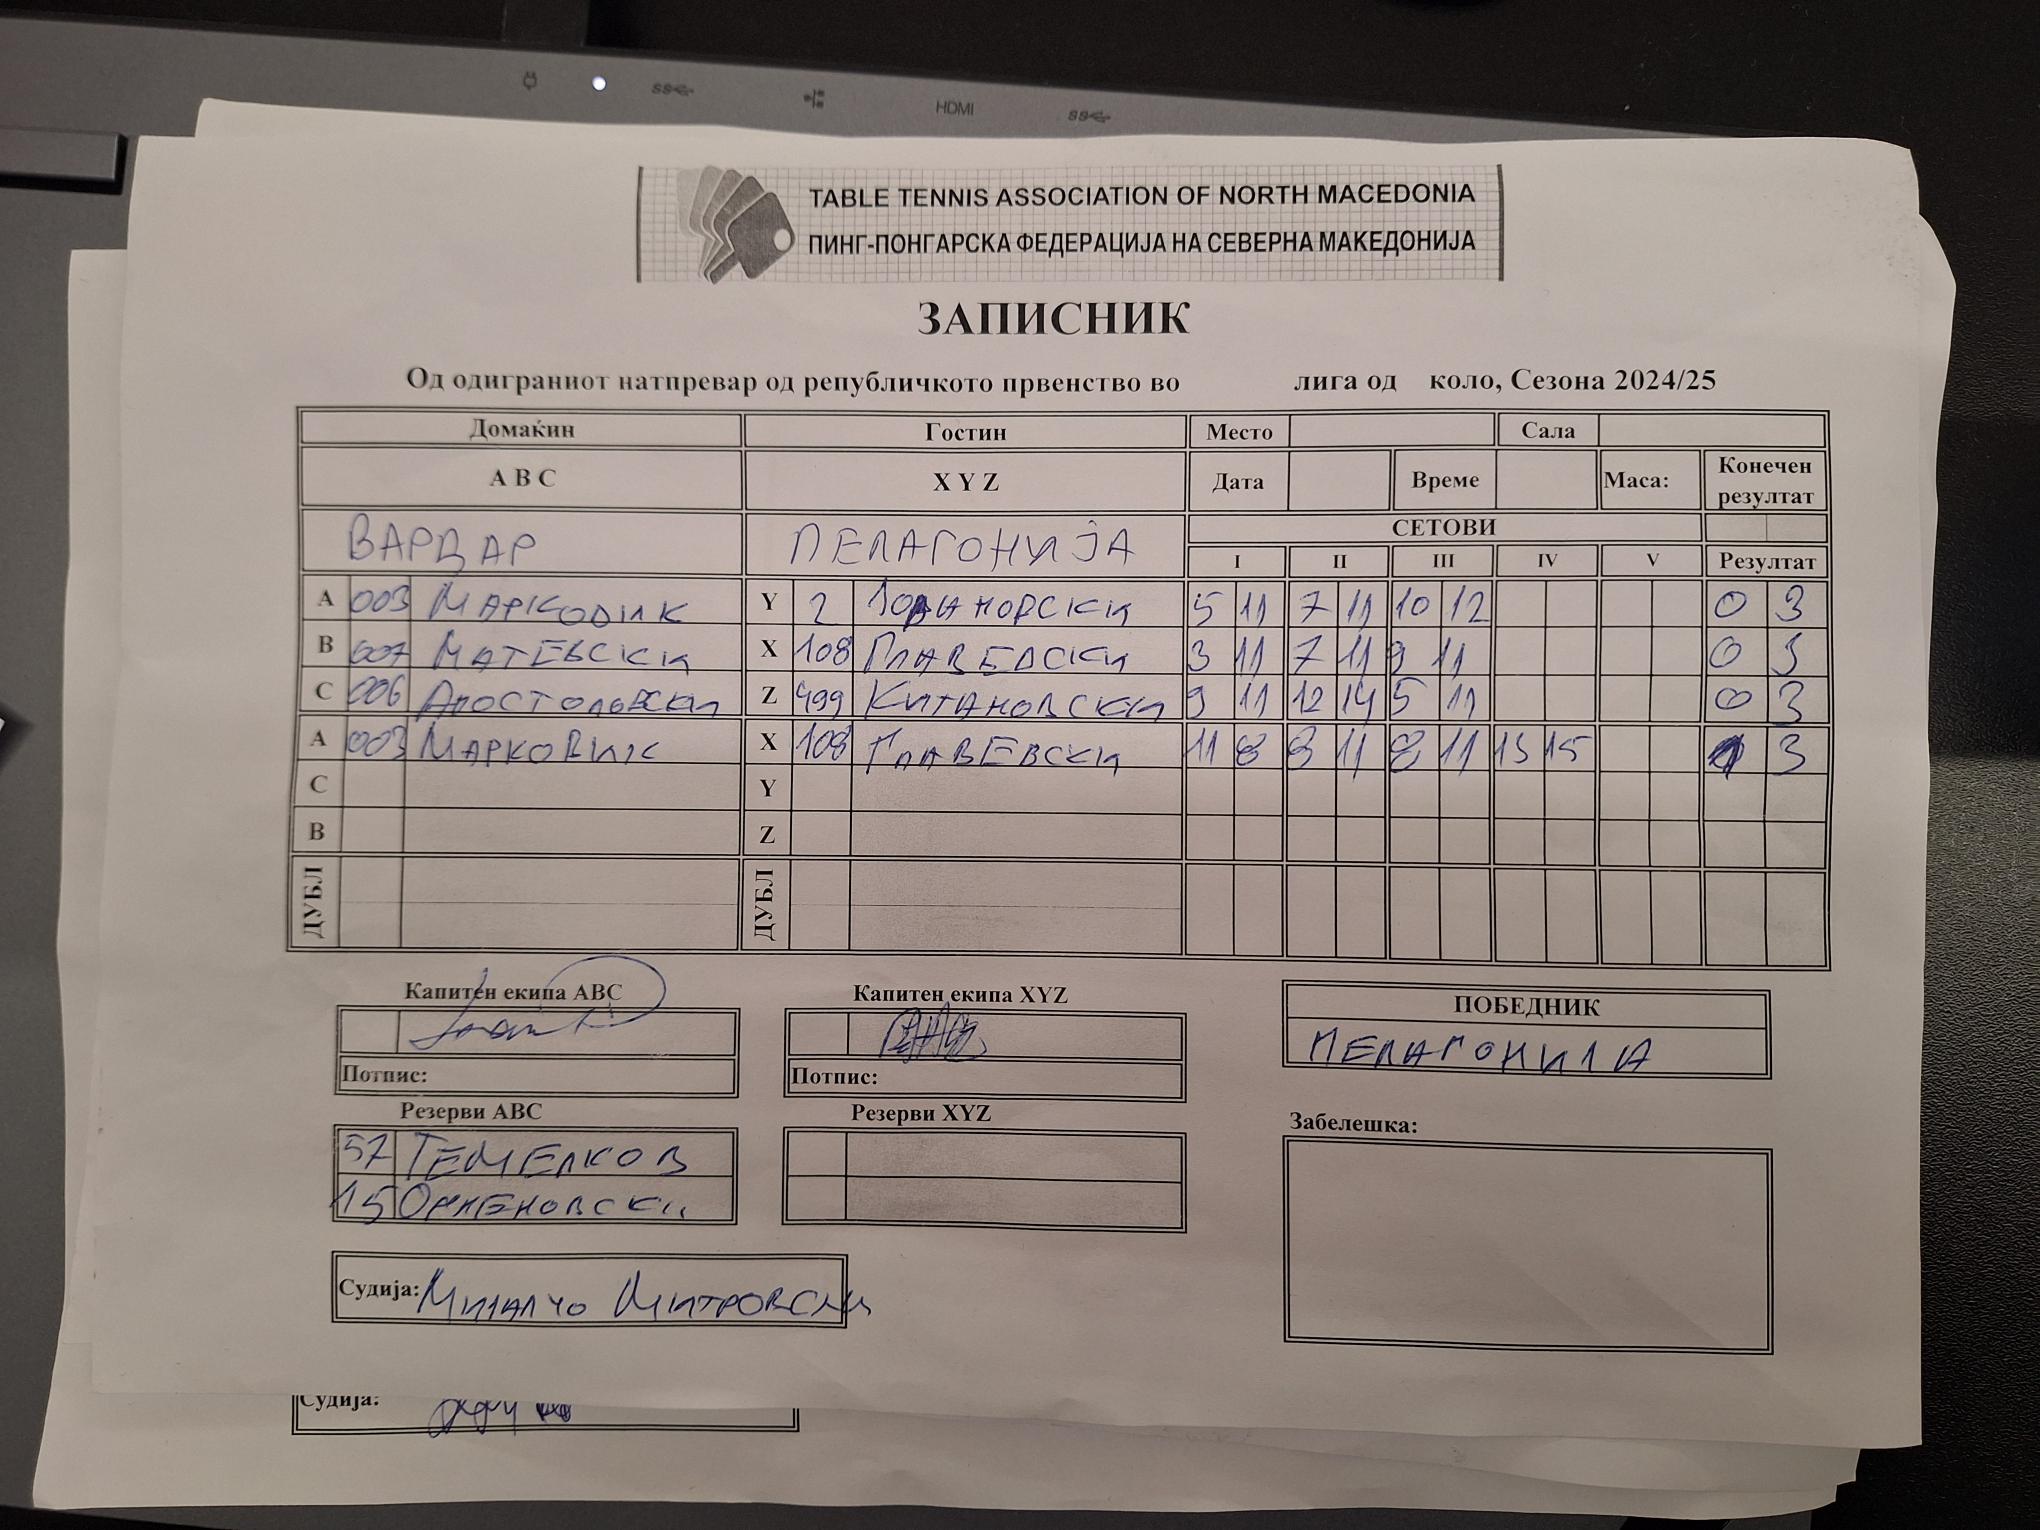 HDMI
TABLE TENNIS ASSOCIATION OF NORTH MACEDONIA
ПИНГ-ПОНГАРСКА ФЕДЕРАЦИЈА НА СЕВЕРНА МАКЕДОНИЈА
ЗАПИСНИК
Од одиграниот натпревар од републичкото првенство во лига од коло, Сезона 2024/25
Домаќин Гостин Место Сала
A B C X Y Z Дата Време Маса: Конечен резултат
ВАРДАР ПЕЛАГОНИЈА СЕТОВИ
I II III IV V Резултат
A 003 МАРКОВИК Y 2 5 11 7 11 10 12 0 3
B 007 МАТЕВСКИ X 108 ГЛАВЕВСКИ 3 11 7 11 9 11 0 3
C 006 АПОСТОЛОВСКИ Z 499 КИТАНОВСКИ 9 11 12 14 5 11 0 3
A 003 МАРКОВИК X 108 ГЛАВЕВСКИ 11 8 8 11 8 11 13 15 1 3
C Y
B Z
ДУБЛ ДУБЛ
Капитен екипа ABC Капитен екипа XYZ ПОБЕДНИК
ПЕЛАГОНИЈА
Потпис: Потпис:
Резерви ABC Резерви XYZ Забелешка:
57 ТЕМЕЛКОВ
15
Судија: МИТРОВСКИ
Судија: